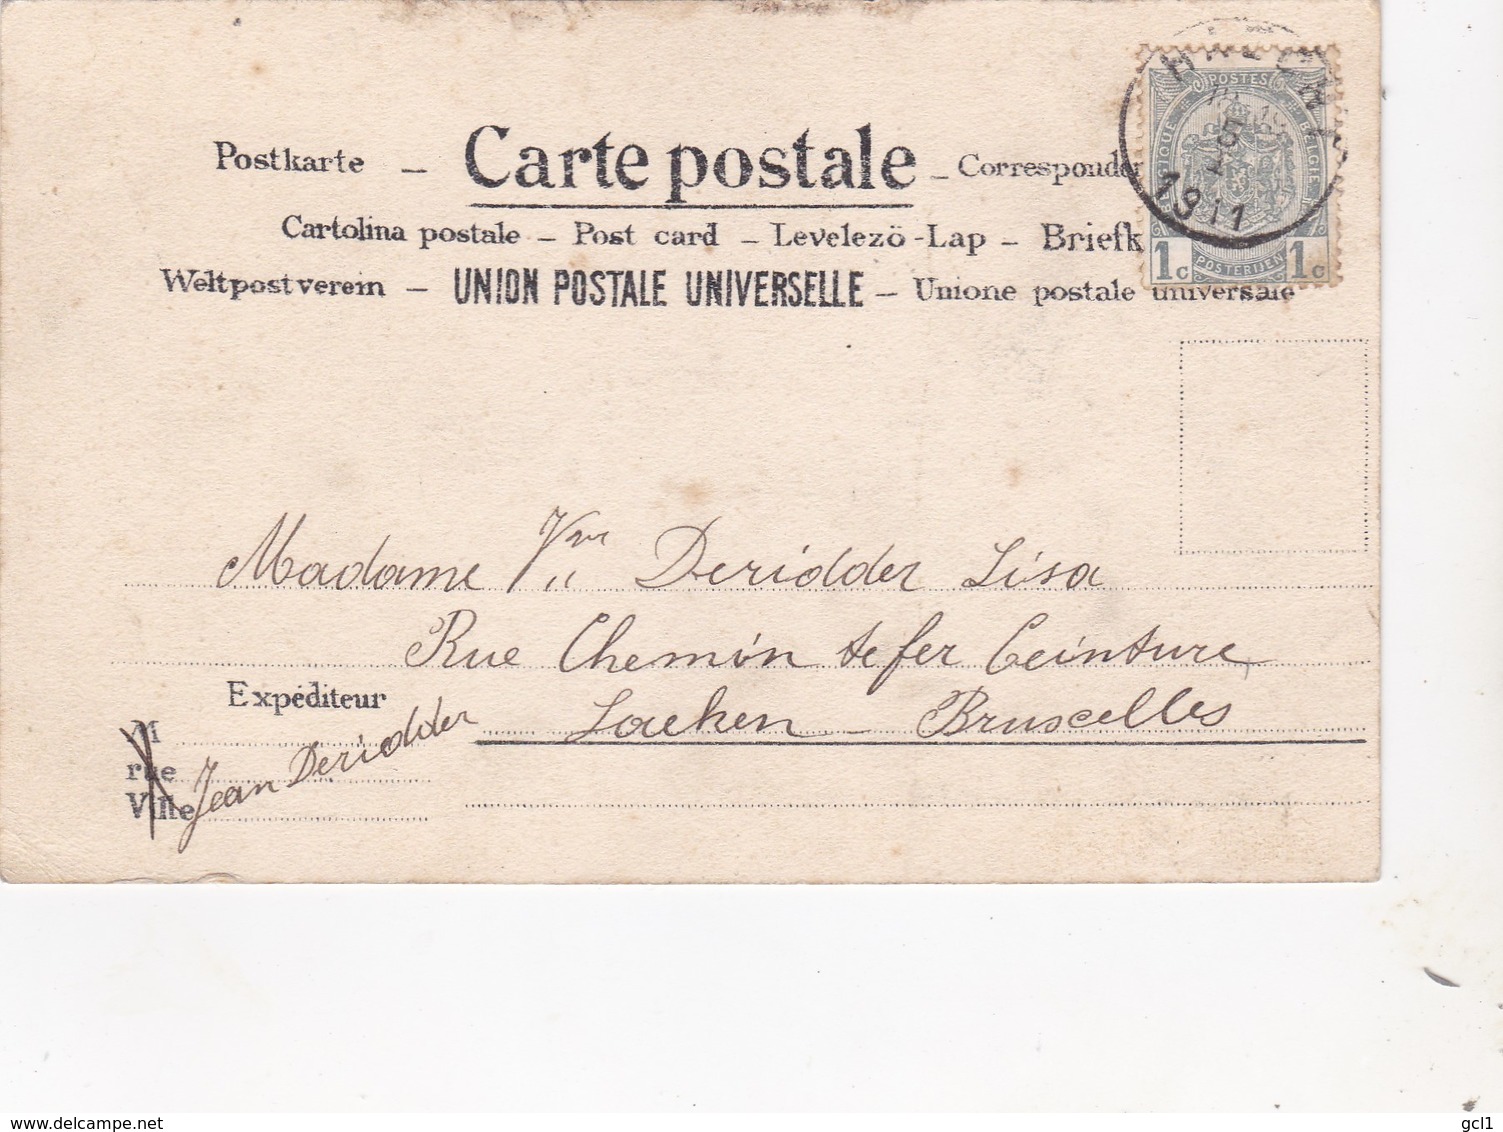 Postkarte – Carte postale – Corresponden
Cartolina postale – Post card – Levelezö-Lap – Briefk
Weltpostverein – UNION POSTALE UNIVERSELLE – Unione postale universale
POSTES
1c POSTERIJEN 1c
5
1911
Madame Deridder Lisa
Rue Chemin de fer Ceinture
Laeken – Bruscelles
Expéditeur
M
rue
Ville
Jean Deridder
www.delcampe.net
gcl1